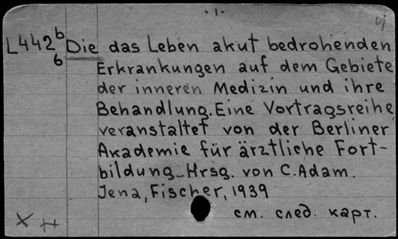 · 1 ·
L442 b/6 Die das Leben akut bedrohenden
Erkrankungen auf dem Gebiete
der inneren Medizin und ihre
Behandlung. Eine Vortragsreihe
veranstaltet von der Berliner
Akademie für ärztliche Fort-
bildung... Hrsg. von C. Adam.
Jena, Fischer, 1939
см. след. карт.